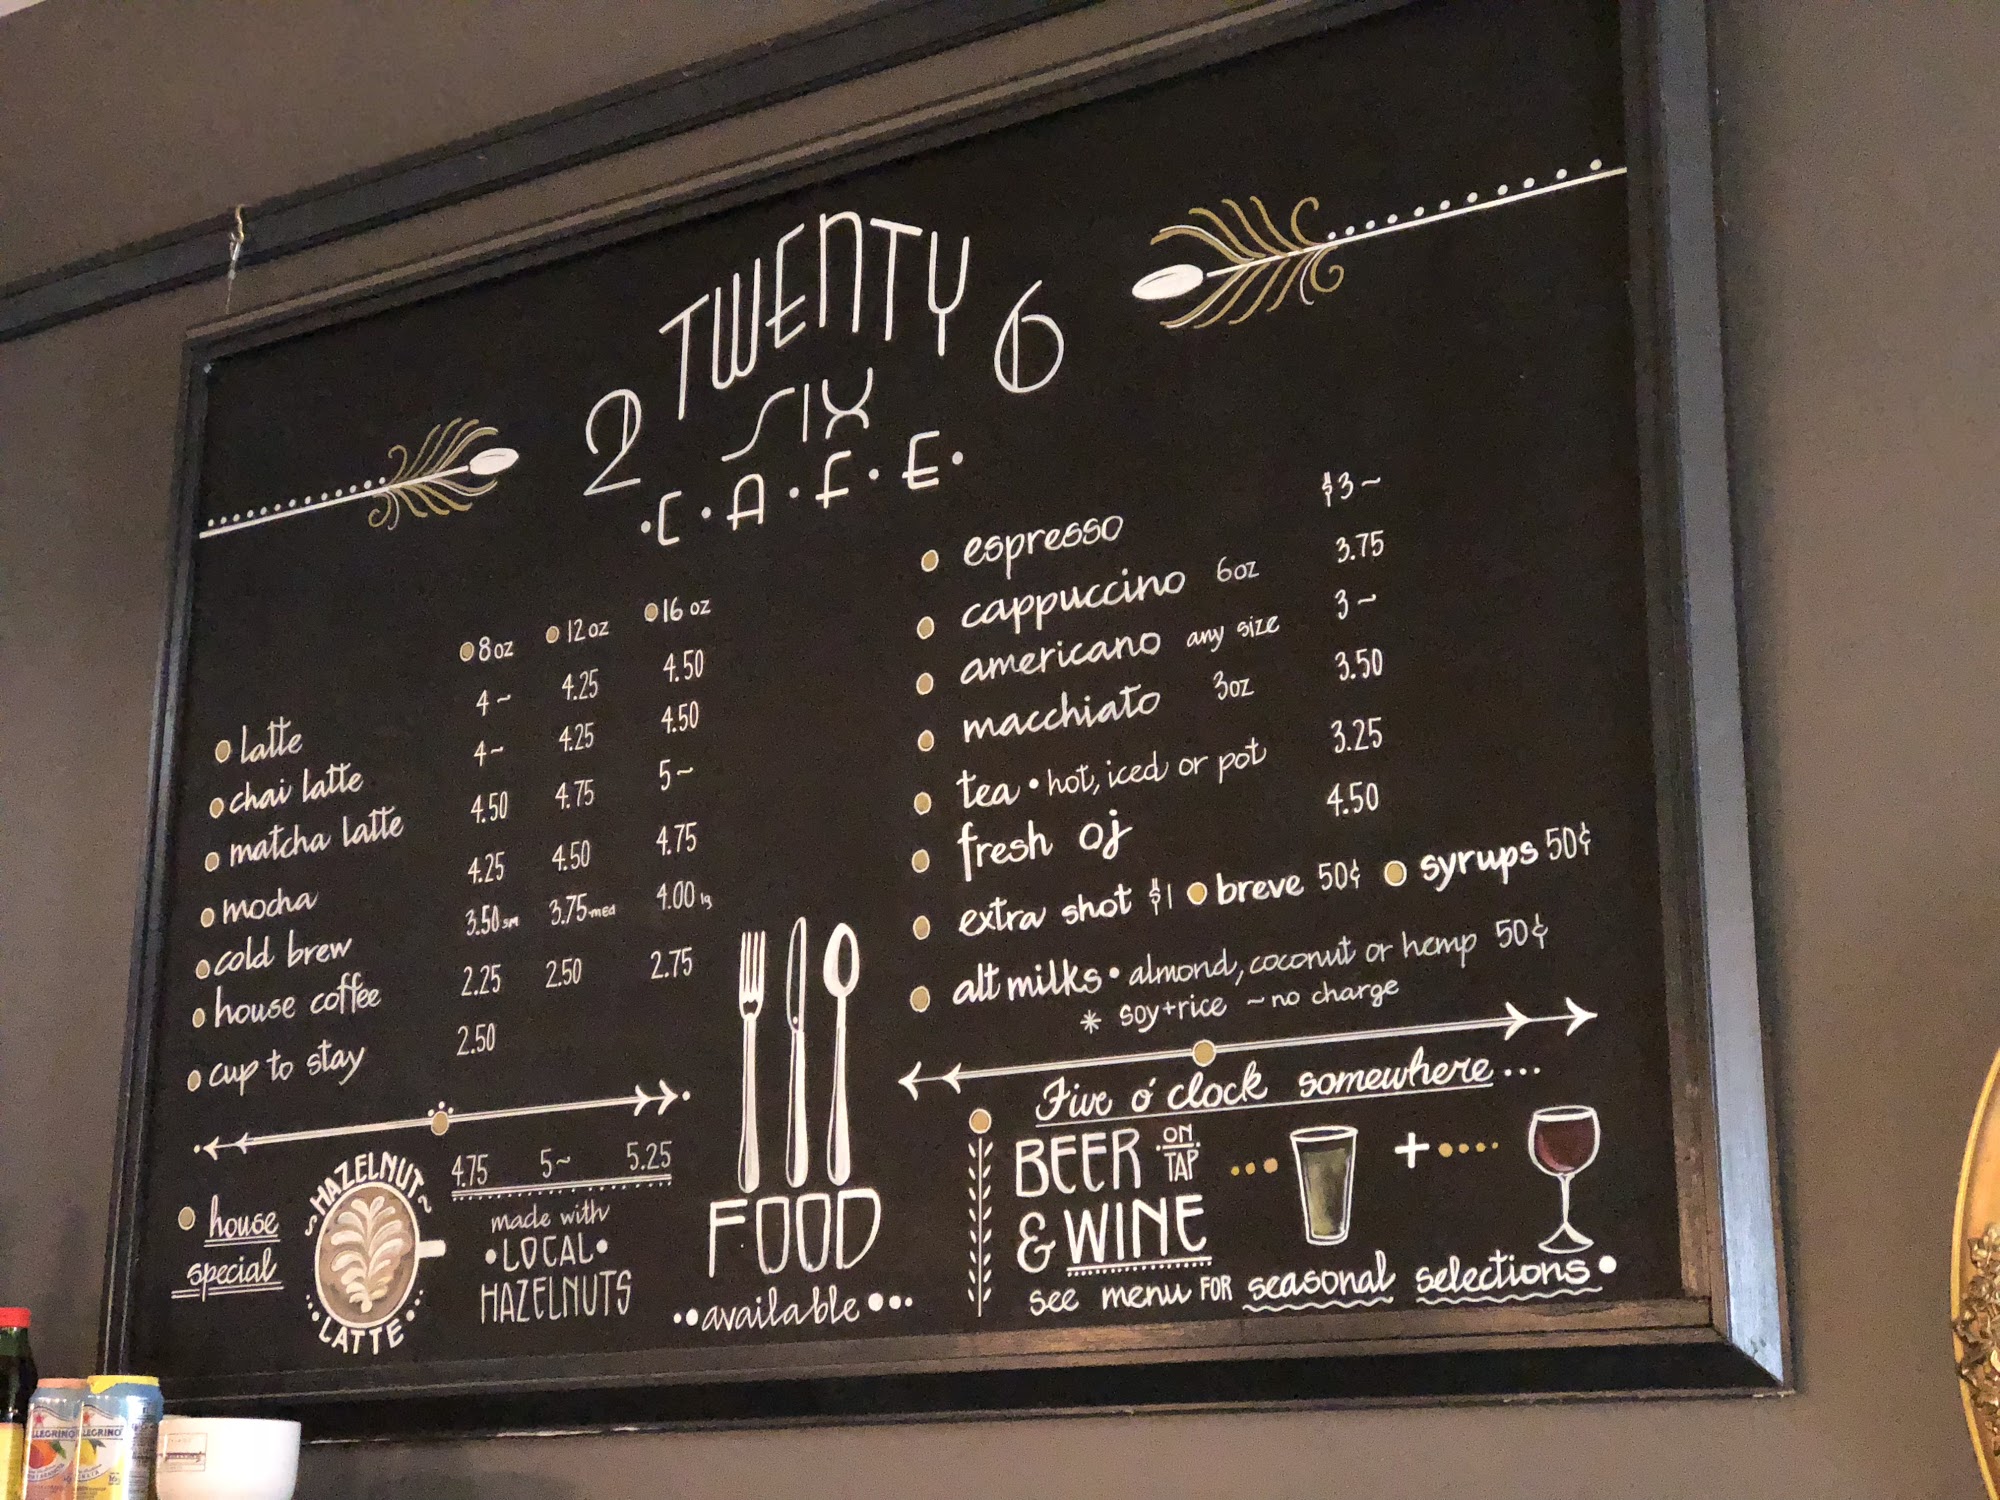 TWENTY
2 SIX 6
·C·A·F·E·
8oz 12oz 16 oz
latte 4~ 4.25 4.50
chai latte 4~ 4.25 4.50
matcha latte 4.50 4.75 5~
mocha 4.25 4.50 4.75
cold brew 3.50 sm 3.75 med 4.00 lg
house coffee 2.25 2.50 2.75
cup to stay 2.50
house
special
HAZELNUT
LATTE
4.75 5~ 5.25
made with
•LOCAL•
HAZELNUTS
FOOD
••available•••
espresso $3~
cappuccino 6oz 3.75
americano any size 3~
macchiato 3oz 3.50
tea • hot, iced or pot 3.25
fresh oj 4.50
extra shot $1 breve 50¢ syrups 50¢
alt milks • almond, coconut or hemp 50¢
* soy+rice ~no charge
Five o'clock somewhere...
BEER ON TAP
& WINE
+
see menu FOR seasonal selections•
LLEGRINO
LLEGRINO